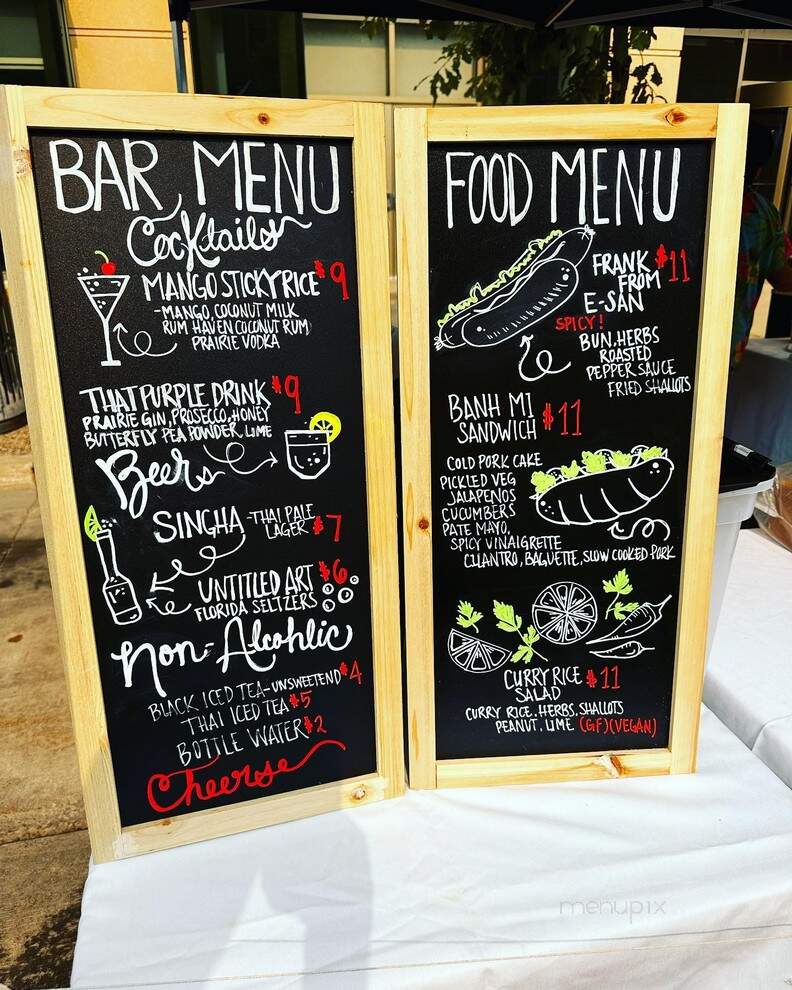 BAR MENU
Cocktails
MANGO STICKY RICE $9
-MANGO, COCONUT MILK
RUM HAVEN COCONUT RUM
PRAIRIE VODKA
THAT PURPLE DRINK $9
PRAIRIE GIN, PROSECCO, HONEY
BUTTERFLY PEA POWDER, LIME
Beers
SINGHA -THAI PALE
LAGER $7
UNTITLED ART $6
FLORIDA SELTZERS
Non-Alcohlic
BLACK ICED TEA-UNSWEETEND $4
THAI ICED TEA $5
BOTTLE WATER $2
Cheerse
FOOD MENU
FRANK $11
FROM
E-SAN
SPICY!
BUN, HERBS
ROASTED
PEPPER SAUCE
FRIED SHALLOTS
BANH MI
SANDWICH $11
COLD PORK CAKE
PICKLED VEG
JALAPENOS
CUCUMBERS
PATE MAYO,
SPICY VINAIGRETTE
CILANTRO, BAGUETTE, SLOW COOKED PORK
CURRY RICE
SALAD $11
CURRY RICE, HERBS, SHALLOTS
PEANUT, LIME (GF)(VEGAN)
menupix